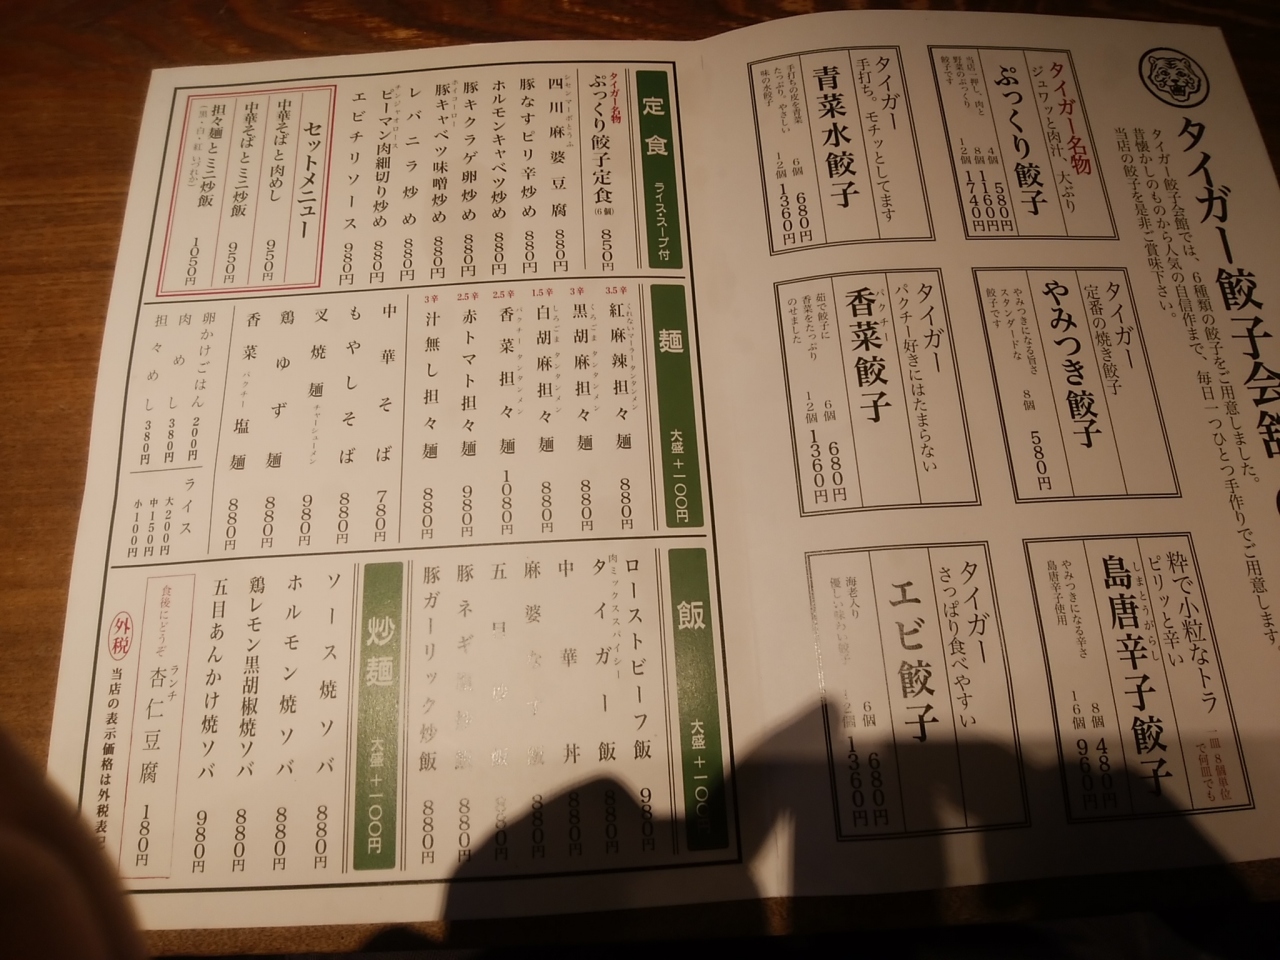 タイガー餃子会館
タイガー餃子会館では、6種類の餃子をご用意しました。
昔懐かしのものから人気の自信作まで、毎日一つひとつ手作りでご用意します。
当店の餃子を是非ご賞味下さい。
タイガー名物
ジュワッと肉汁、大ぶり
ぷっくり餃子
当店一押し、肉と
野菜のぷっくり
餃子です
4個 580円
8個 1160円
12個 1740円
タイガー
手打ち。モチッとしてます
青菜水餃子
手打ちの皮を青菜
たっぷり、やさしい
味の水餃子
6個 680円
12個 1360円
タイガー
定番の焼き餃子
やみつき餃子
やみつきになる旨さ
スタンダードな
餃子です
8個 580円
タイガー
パクチー好きにはたまらない
香菜餃子
パクチー
茹で餃子に
香菜をたっぷり
のせました
6個 680円
12個 1360円
粋で小粒なトラ
ピリッと辛い
島唐辛子餃子
しまとうがらし
やみつきになる辛さ
島唐辛子使用
8個 480円
16個 960円
一皿8個単位
で何皿でも
タイガー
さっぱり食べやすい
エビ餃子
海老入り
優しい味わい餃子
6個 680円
12個 1360円
定食 ライス・スープ付
タイガー名物
ぷっくり餃子定食(6個) 850円
四川麻婆豆腐 880円
豚なすピリ辛炒め 880円
ホルモンキャベツ炒め 880円
豚キクラゲ卵炒め 880円
ホイコーロー
豚キャベツ味噌炒め 880円
レバニラ炒め 880円
チンジャオロース
ピーマン肉細切り炒め 880円
エビチリソース 980円
セットメニュー
中華そばと肉めし 950円
中華そばとミニ炒飯 950円
担々麺とミニ炒飯 1050円
(黒・白・紅いづれか)
麺 大盛+100円
3.5辛 紅麻辣担々麺 880円
3辛 黒胡麻担々麺 880円
くろごま タンタンメン
1.5辛 白胡麻担々麺 880円
しろごま タンタンメン
2.5辛 香菜担々麺 1080円
パクチー タンタンメン
2.5辛 赤トマト担々麺 980円
3辛 汁無し担々麺 880円
中華そば 780円
もやしそば 880円
叉焼麺 チャーシューメン 980円
鶏ゆず麺 880円
香菜塩麺 880円
パクチー
卵かけごはん 200円
肉めし 380円
担々めし 380円
ライス
大200円
中150円
小100円
飯 大盛+100円
ローストビーフ飯 980円
肉ミックススパイシー
タイガー飯 880円
中華丼 880円
麻婆 880円
五目炒飯 880円
豚ネギ 880円
豚ガーリック炒飯 880円
炒麺 大盛+100円
ソース焼ソバ 880円
ホルモン焼ソバ 880円
鶏レモン黒胡椒焼ソバ 880円
五目あんかけ焼ソバ 980円
食後にどうぞ
ランチ
杏仁豆腐 180円
外税 当店の表示価格は外税表記